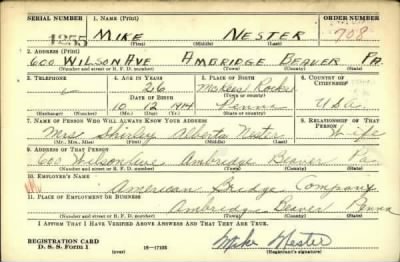 SERIAL NUMBER 1. NAME (Print) ORDER NUMBER
1255 MIKE NESTER 708
(First) (Middle) (Last)
2. ADDRESS (Print)
600 WILSON AVE AMBRIDGE BEAVER PA.
(Number and street or R. F. D. number) (Town) (County) (State)
3. TELEPHONE 4. AGE IN YEARS 5. PLACE OF BIRTH 6. COUNTRY OF CITIZENSHIP
26 McKees Rocks
DATE OF BIRTH (Town or county)
10 12 1914 Penna U.S.A.
(Exchange) (Number) (Mo.) (Day) (Yr.) (State or country)
7. NAME OF PERSON WHO WILL ALWAYS KNOW YOUR ADDRESS 8. RELATIONSHIP OF THAT PERSON
Mrs Shirley Alberta Nester Wife
(Mr., Mrs., Miss) (First) (Middle) (Last)
9. ADDRESS OF THAT PERSON
600 Wilson Ave Ambridge Beaver Pa
(Number and street or R. F. D. number) (Town) (County) (State)
10. EMPLOYER'S NAME
American Bridge Company
11. PLACE OF EMPLOYMENT OR BUSINESS
Ambridge Beaver Penna
(Number and street or R. F. D. number) (Town) (County) (State)
I AFFIRM THAT I HAVE VERIFIED ABOVE ANSWERS AND THAT THEY ARE TRUE.
REGISTRATION CARD Mike Nester
D. S. S. Form 1 (over) 16—17105 (Registrant's signature)